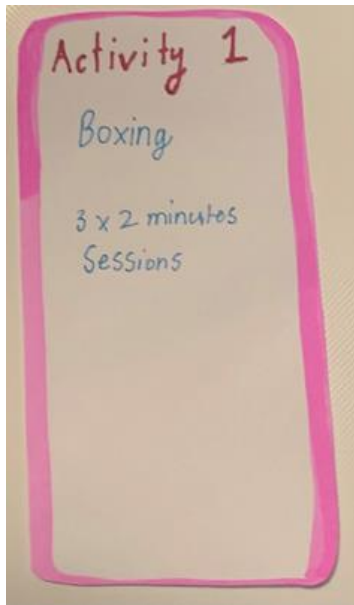 Activity 1
Boxing
3 x 2 minutes
Sessions